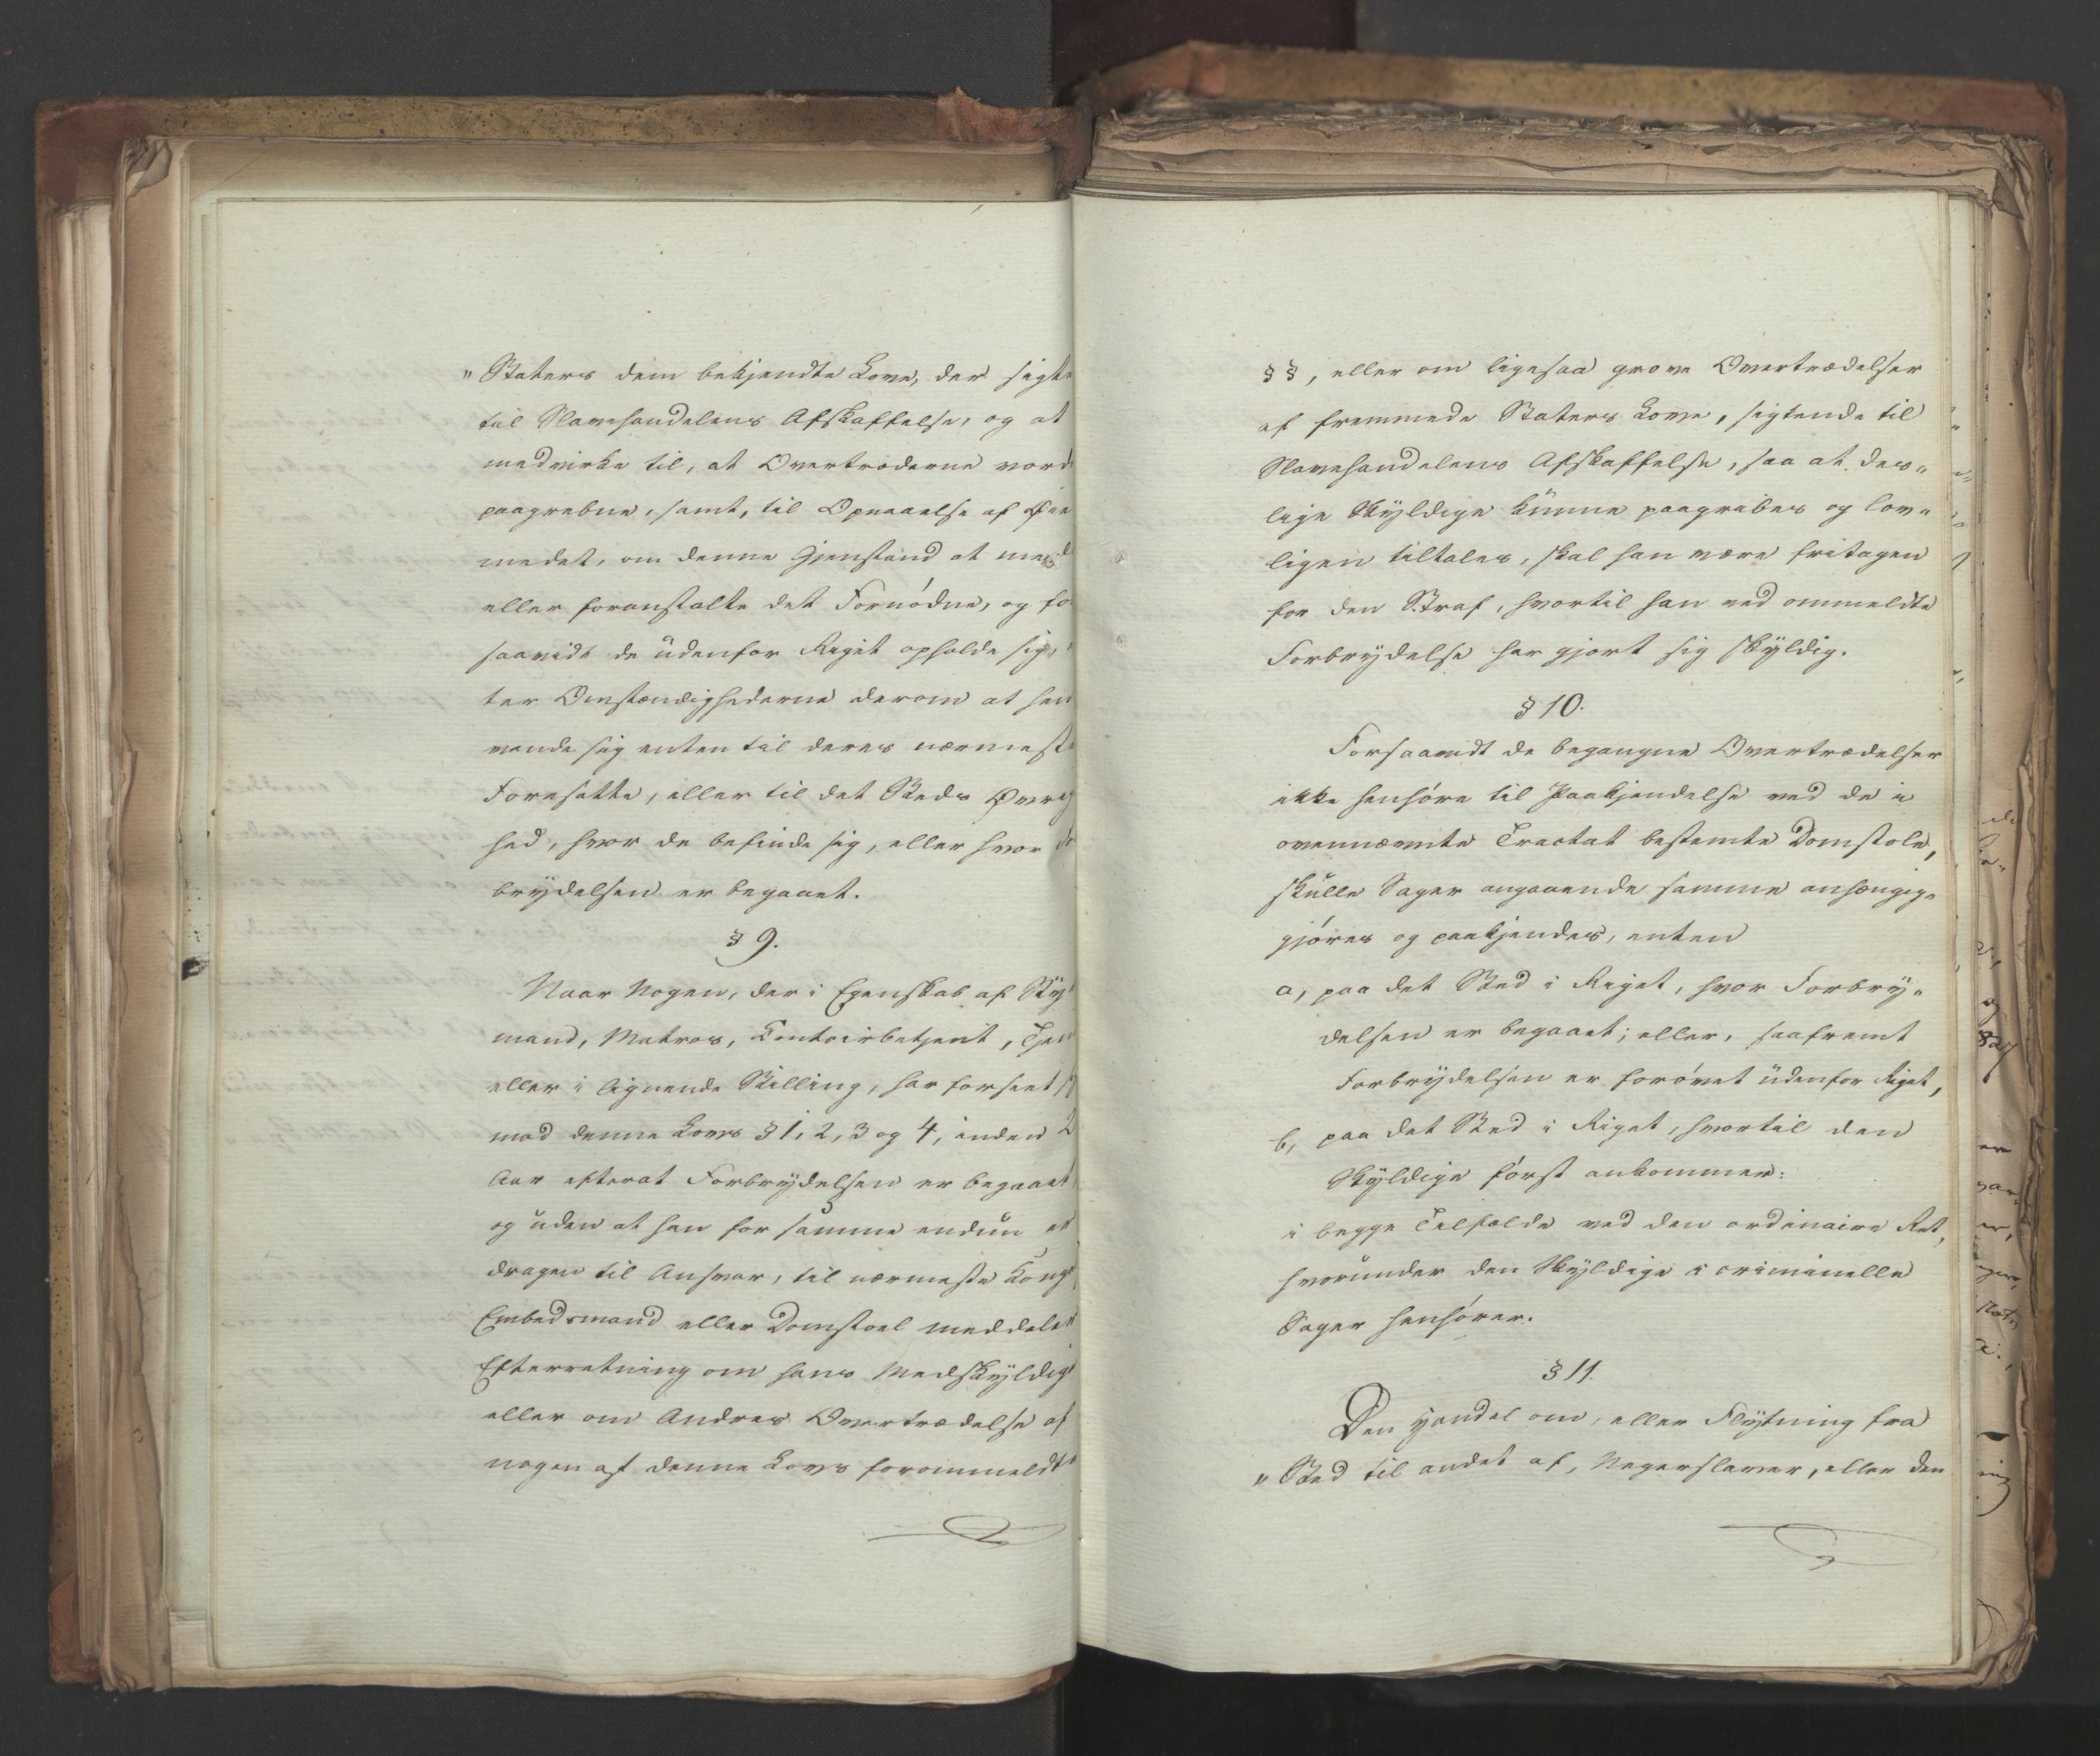 "Staters dem bekjendte Love, der sigte
til Slavehandelens Afskaffelse, og at
medvirke til, at Overtræderne vorde
paagrebne, samt, til Opnaaelse af Øie
medet, om denne Gjenstand at med
eller foranstalte det Fornødne, og for
saavidt de udenfor Riget opholde sig,
ter Omstændighederne derom at hen
vende sig enten til deres nærmeste
Foresatte, eller til det Steds Øvrig
hed, hvor de befinde sig, eller hvor For
brydelsen er begaaet.
§ 9.
Naar Nogen, der i Egenskab af Sty
mand, Matros, Contoirbetjent, Tjen
eller i lignende Stilling, har forseet sig
mod denne Lovs § 1, 2, 3 og 4, inden 2
Aar efterat Forbrydelsen er begaaet
og uden at han for samme endnu er
dragen til Ansvar, til nærmeste Kongl
Embedsmand eller Domstoel meddeler
Efterretning om hans Medskyldige
eller om Andres Overtrædelse af
nogen af denne Lovs forommeldte
§§, eller om ligesaa grove Overtrædelser
af fremmede Staters Love, sigtende til
Slavehandelens Afskaffelse, saa at des"
lige Skyldige kunne paagribes og lov"
ligen tiltales, skal han være fritagen
for den Straf, hvortil han ved ommeldte
Forbrydelse har gjort sig skyldig.
§ 10.
Forsaavidt de begangne Overtrædelser
ikke henhøre til Paakjendelse ved de i
ovennævnte Tractat bestemte Domstole,
skulle Sager angaaende samme anhængig"
gjøres og paakjendes, enten
a, paa det Sted i Riget, hvor Forbry"
delsen er begaaet; eller, saafremt
Forbrydelsen er forøvet udenfor Riget,
b, paa det Sted i Riget, hvortil den
Skyldige først ankommer:
i begge Tilfælde ved den ordinaire Ret,
hvorunder den Skyldige i criminelle
Sager henhører.
§ 11.
Den Handel om, eller Flytning fra
"Sted til andet af, Negerslaver, eller den